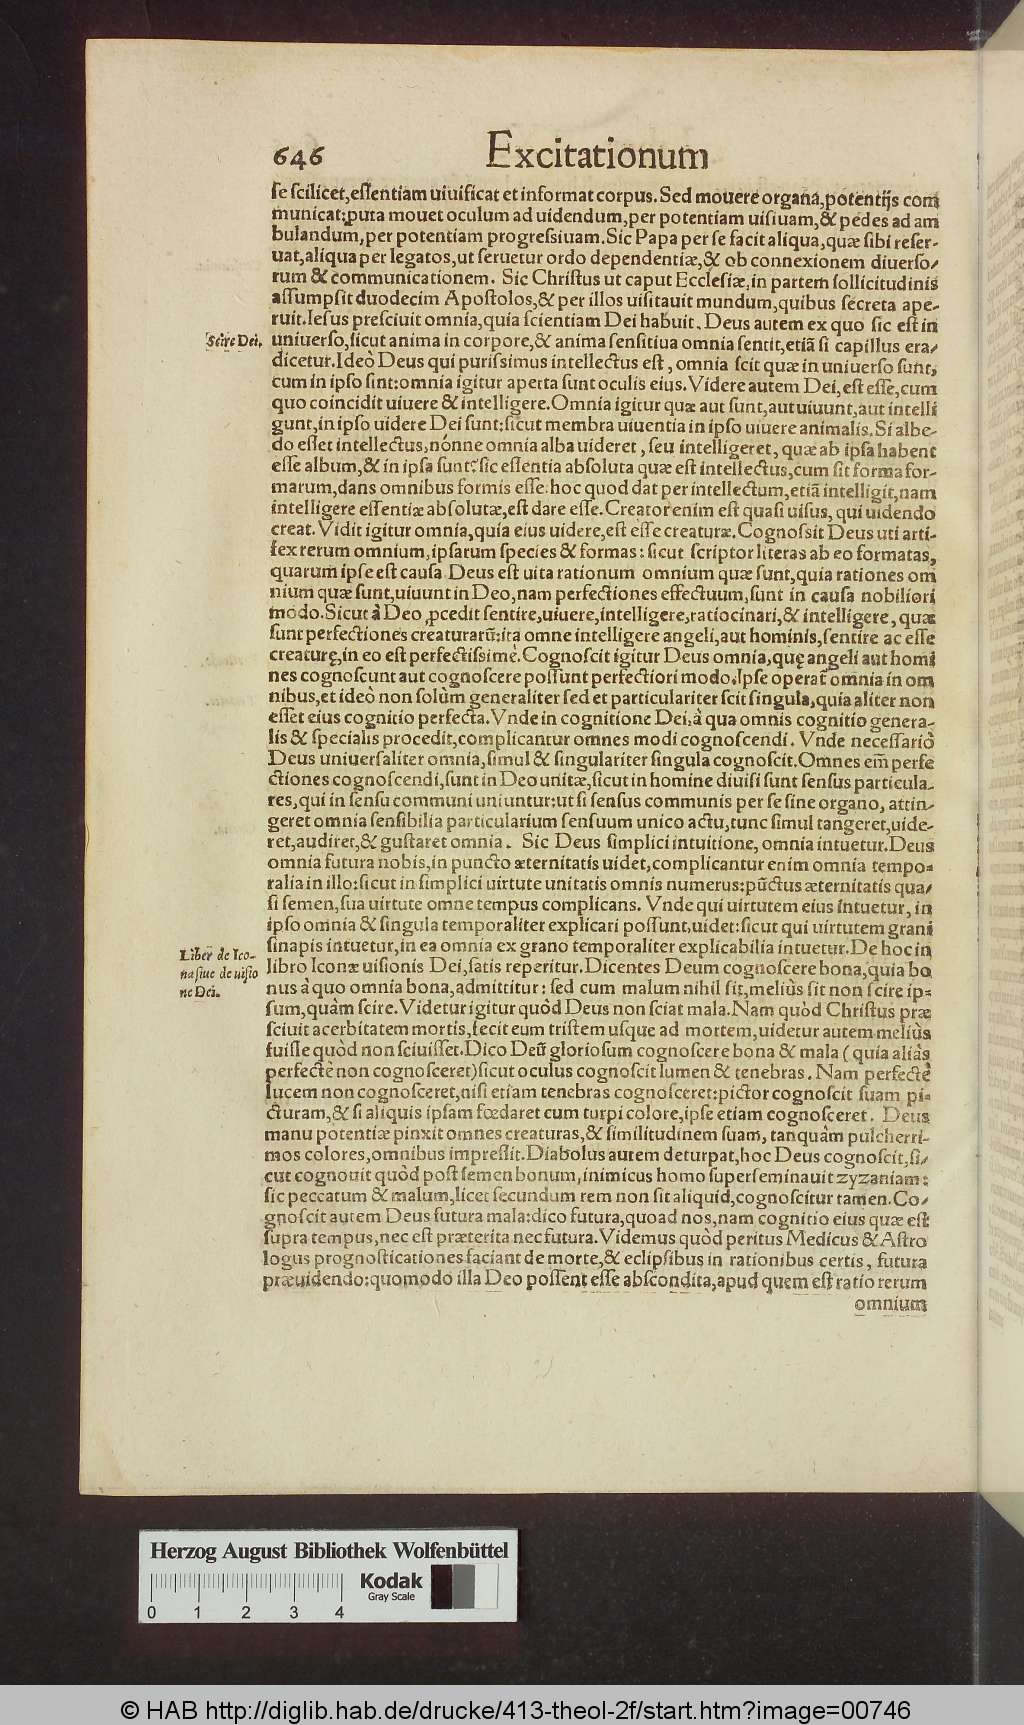 646 Excitationum
se scilicet,essentiam uiuificat et informat corpus. Sed mouere organa,potentijs com
municat:puta mouet oculum ad uidendum,per potentiam uisiuam,& pedes ad am
bulandum,per potentiam progressiuam.Sic Papa per se facit aliqua,quæ sibi reser-
uat,aliqua per legatos,ut seruetur ordo dependentiæ,& ob connexionem diuerso/
rum & communicationem. Sic Christus ut caput Ecclesiæ,in partem sollicitudinis
assumpsit duodecim Apostolos,& per illos uisitauit mundum,quibus secreta ape-
ruit.Iesus presciuit omnia,quia scientiam Dei habuit. Deus autem ex quo sic est in
Scire Dei.
uniuerso,sicut anima in corpore,& anima sensitiua omnia sentit,etiã si capillus era/
dicetur.Ideò Deus qui purissimus intellectus est, omnia scit quæ in uniuerso sunt,
cum in ipso sint:omnia igitur aperta sunt oculis eius.Videre autem Dei,est esse,cum
quo coincidit uiuere & intelligere.Omnia igitur quæ aut sunt,aut uiuunt,aut intelli
gunt,in ipso uidere Dei sunt:sicut membra uiuentia in ipso uiuere animalis.Si albe-
do esset intellectus,nónne omnia alba uideret, seu intelligeret, quæ ab ipsa habent
esse album,& in ipsa sunt?sic essentia absoluta quæ est intellectus,cum sit forma for-
marum,dans omnibus formis esse:hoc quod dat per intellectum,etiã intelligit,nam
intelligere essentiæ absolutæ,est dare esse.Creator enim est quasi uisus, qui uidendo
creat.Vidit igitur omnia,quia eius uidere,est esse creaturæ.Cognoscit Deus uti arti-
fex rerum omnium,ipsarum species & formas: sicut scriptor literas ab eo formatas,
quarum ipse est causa Deus est uita rationum omnium quæ sunt,quia rationes om
nium quæ sunt,uiuunt in Deo,nam perfectiones effectuum,sunt in causa nobiliori
modo.Sicut à Deo ꝓcedit sentire,uiuere,intelligere,ratiocinari,& intelligere, quæ
sunt perfectiones creaturarũ:ita omne intelligere angeli,aut hominis,sentire ac esse
creaturę,in eo est perfectissimè.Cognoscit igitur Deus omnia,quę angeli aut homi
nes cognoscunt aut cognoscere possunt perfectiori modo.Ipse operat̃ omnia in om
nibus,et ideò non solùm generaliter sed et particulariter scit singula,quia aliter non
esset eius cognitio perfecta.Vnde in cognitione Dei,à qua omnis cognitio genera-
lis & specialis procedit,complicantur omnes modi cognoscendi. Vnde necessariò
Deus uniuersaliter omnia,simul & singulariter singula cognoscit.Omnes em̃ perfe
ctiones cognoscendi,sunt in Deo unitæ,sicut in homine diuisi sunt sensus particula-
res,qui in sensu communi uniuntur:ut si sensus communis per se sine organo, attin-
geret omnia sensibilia particularium sensuum unico actu,tunc simul tangeret,uide-
ret,audiret,& gustaret omnia. Sic Deus simplici intuitione, omnia intuetur.Deus
omnia futura nobis,in puncto æternitatis uidet,complicantur enim omnia tempo-
ralia in illo:sicut in simplici uirtute unitatis omnis numerus:pũctus æternitatis qua/
si semen,sua uirtute omne tempus complicans. Vnde qui uirtutem eius intuetur, in
ipso omnia & singula temporaliter explicari possunt,uidet:sicut qui uirtutem grani
sinapis intuetur,in ea omnia ex grano temporaliter explicabilia intuetur.De hoc in
Liber de Ico-
na siue de uisio
ne Dei.
libro Iconæ uisionis Dei,satis reperitur.Dicentes Deum cognoscere bona,quia bo
nus à quo omnia bona,admittitur: sed cum malum nihil sit,meliùs sit non scire ip-
sum,quàm scire.Videtur igitur quòd Deus non sciat mala.Nam quòd Christus præ
sciuit acerbitatem mortis,fecit eum tristem usque ad mortem,uidetur autem meliùs
fuisse quòd non sciuisset.Dico Deũ gloriosum cognoscere bona & mala (quia aliàs
perfectè non cognosceret)sicut oculus cognoscit lumen & tenebras. Nam perfectè
lucem non cognosceret,nisi etiam tenebras cognosceret:pictor cognoscit suam pi-
cturam,& si aliquis ipsam fœdaret cum turpi colore,ipse etiam cognosceret. Deus
manu potentiæ pinxit omnes creaturas,& similitudinem suam, tanquàm pulcherri-
mos colores,omnibus impressit.Diabolus autem deturpat,hoc Deus cognoscit,si/
cut cognouit quòd post semen bonum,inimicus homo superseminauit zyzaniam:
sic peccatum & malum,licet secundum rem non sit aliquid,cognoscitur tamen.Co/
gnoscit autem Deus futura mala:dico futura,quoad nos,nam cognitio eius quæ est
supra tempus,nec est præterita nec futura.Videmus quòd peritus Medicus & Astro
logus prognosticationes faciant de morte,& eclipsibus in rationibus certis, futura
præuidendo:quomodo illa Deo possent esse abscondita,apud quem est ratio rerum
omnium
Herzog August Bibliothek Wolfenbüttel
0 1 2 3 4
Kodak
Gray Scale
© HAB http://diglib.hab.de/drucke/413-theol-2f/start.htm?image=00746